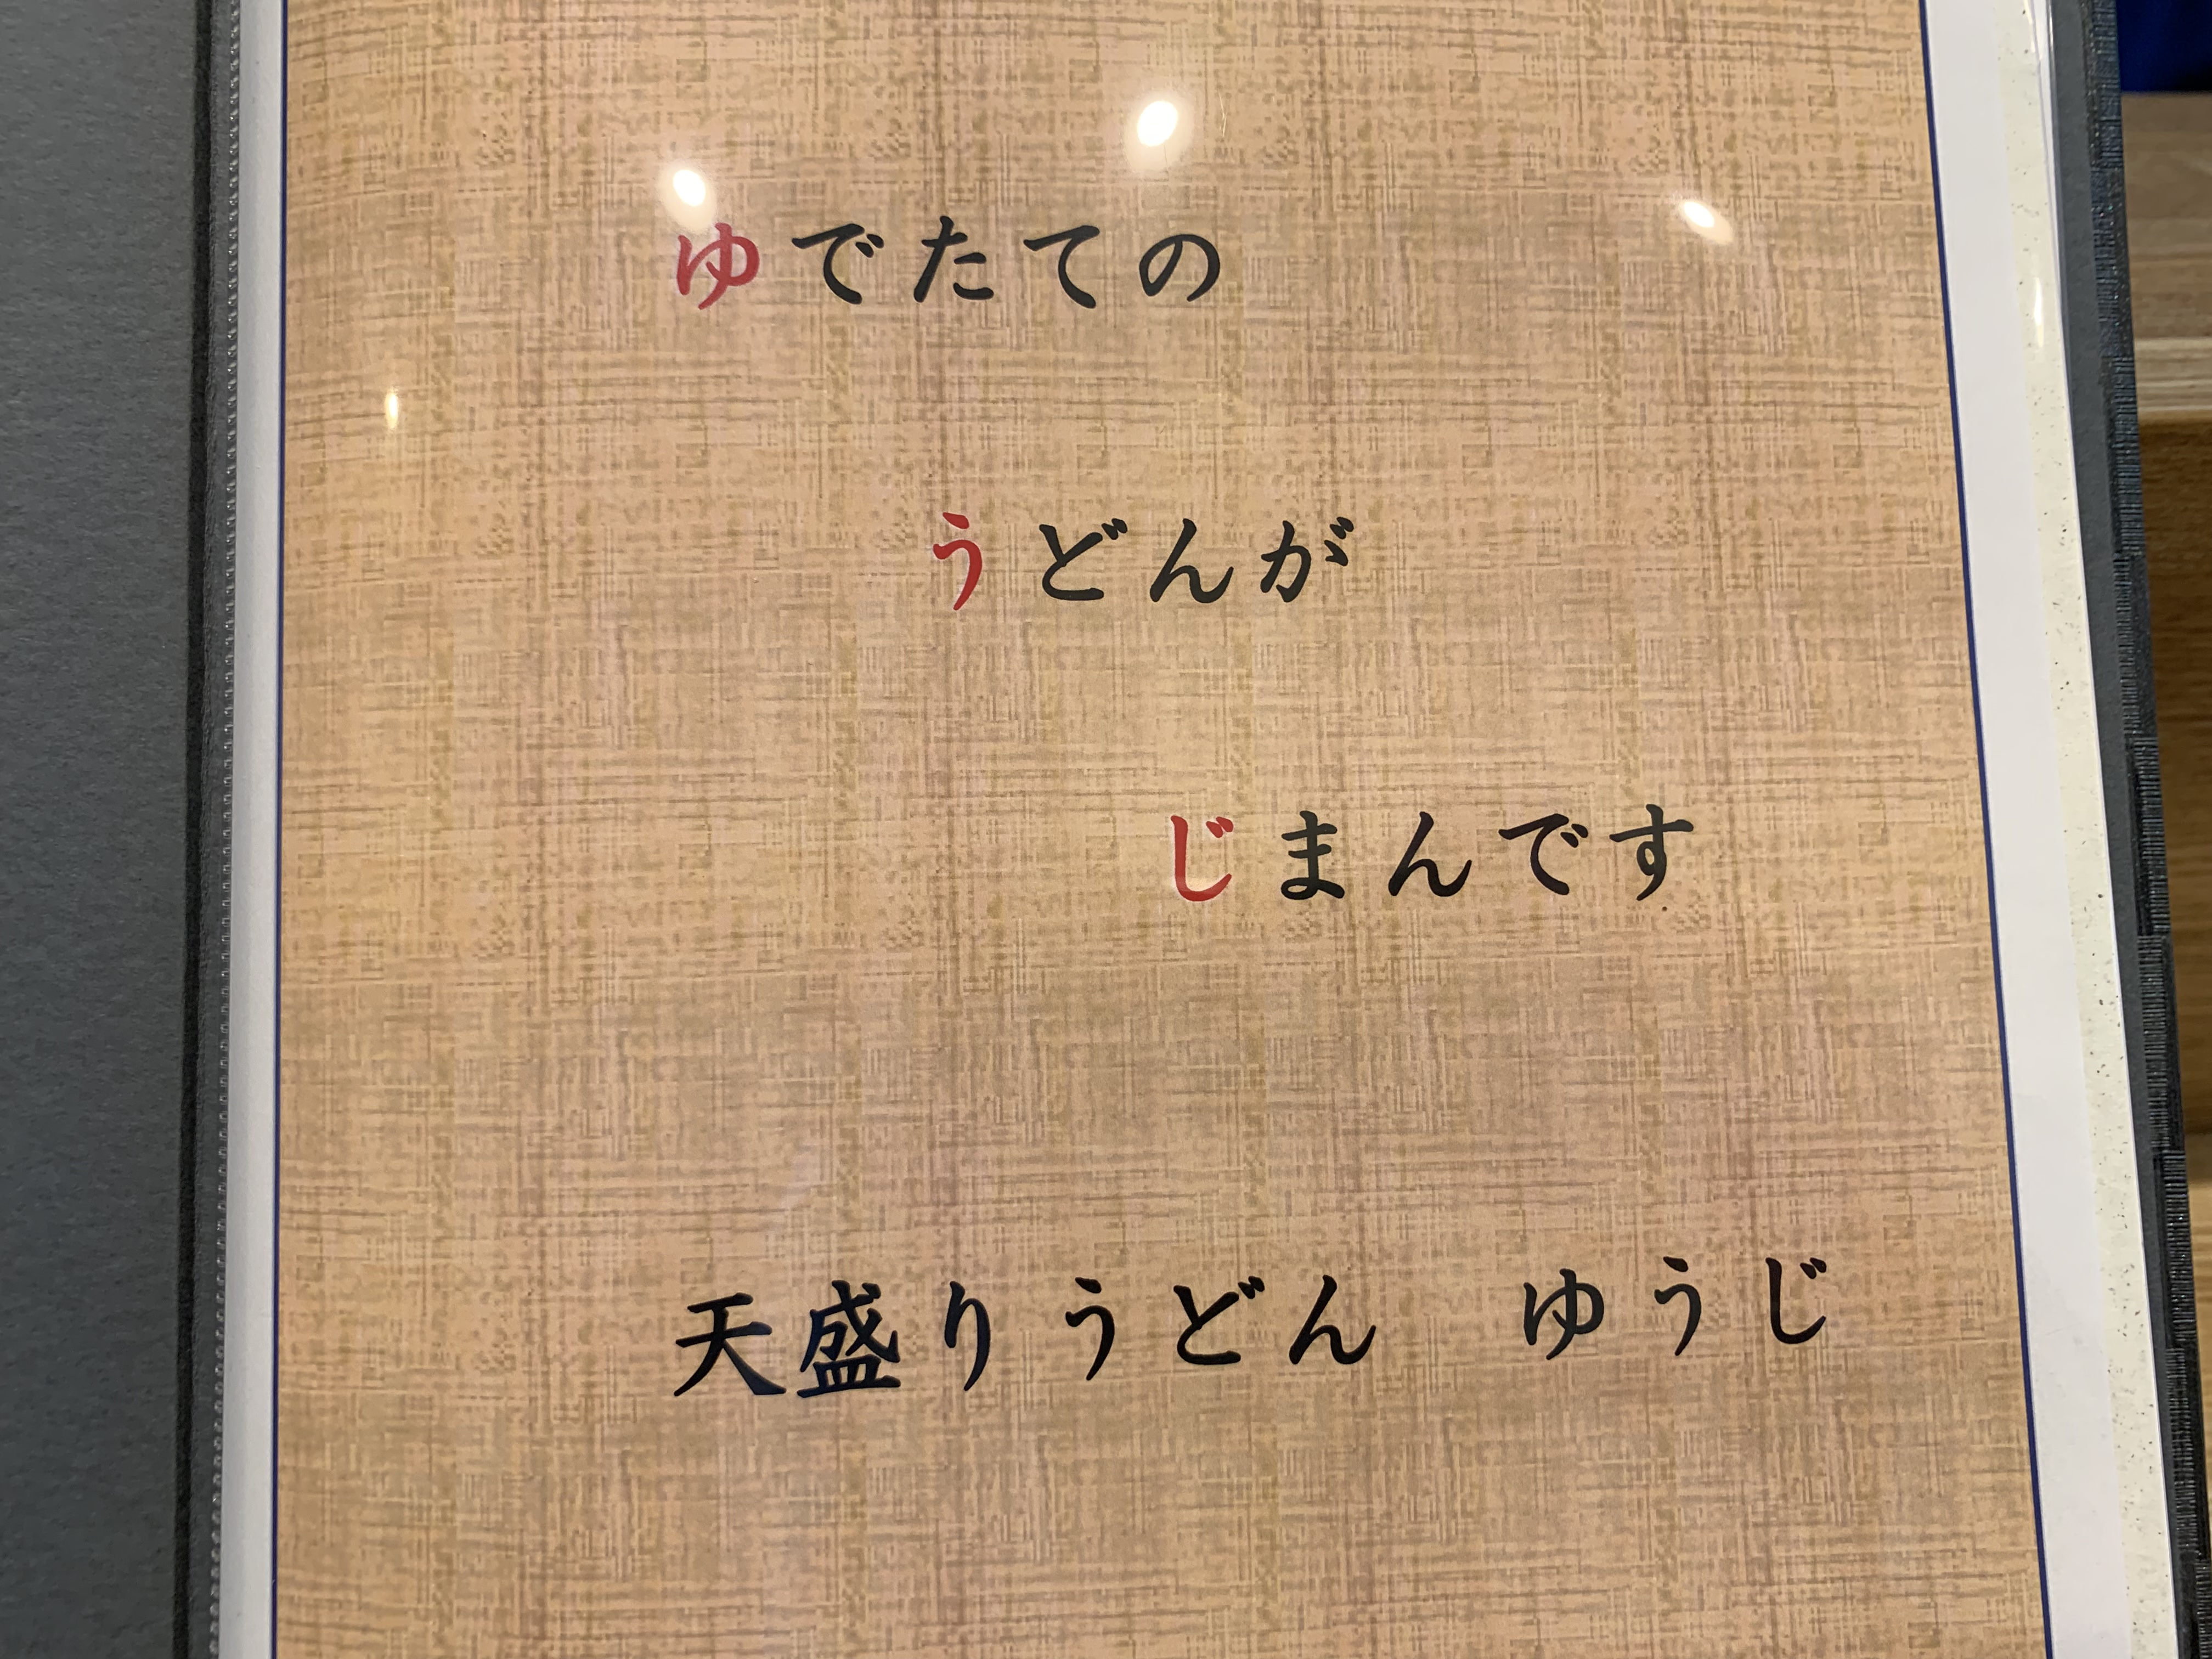 ゆでたての
うどんが
じまんです
天盛りうどん　ゆうじ